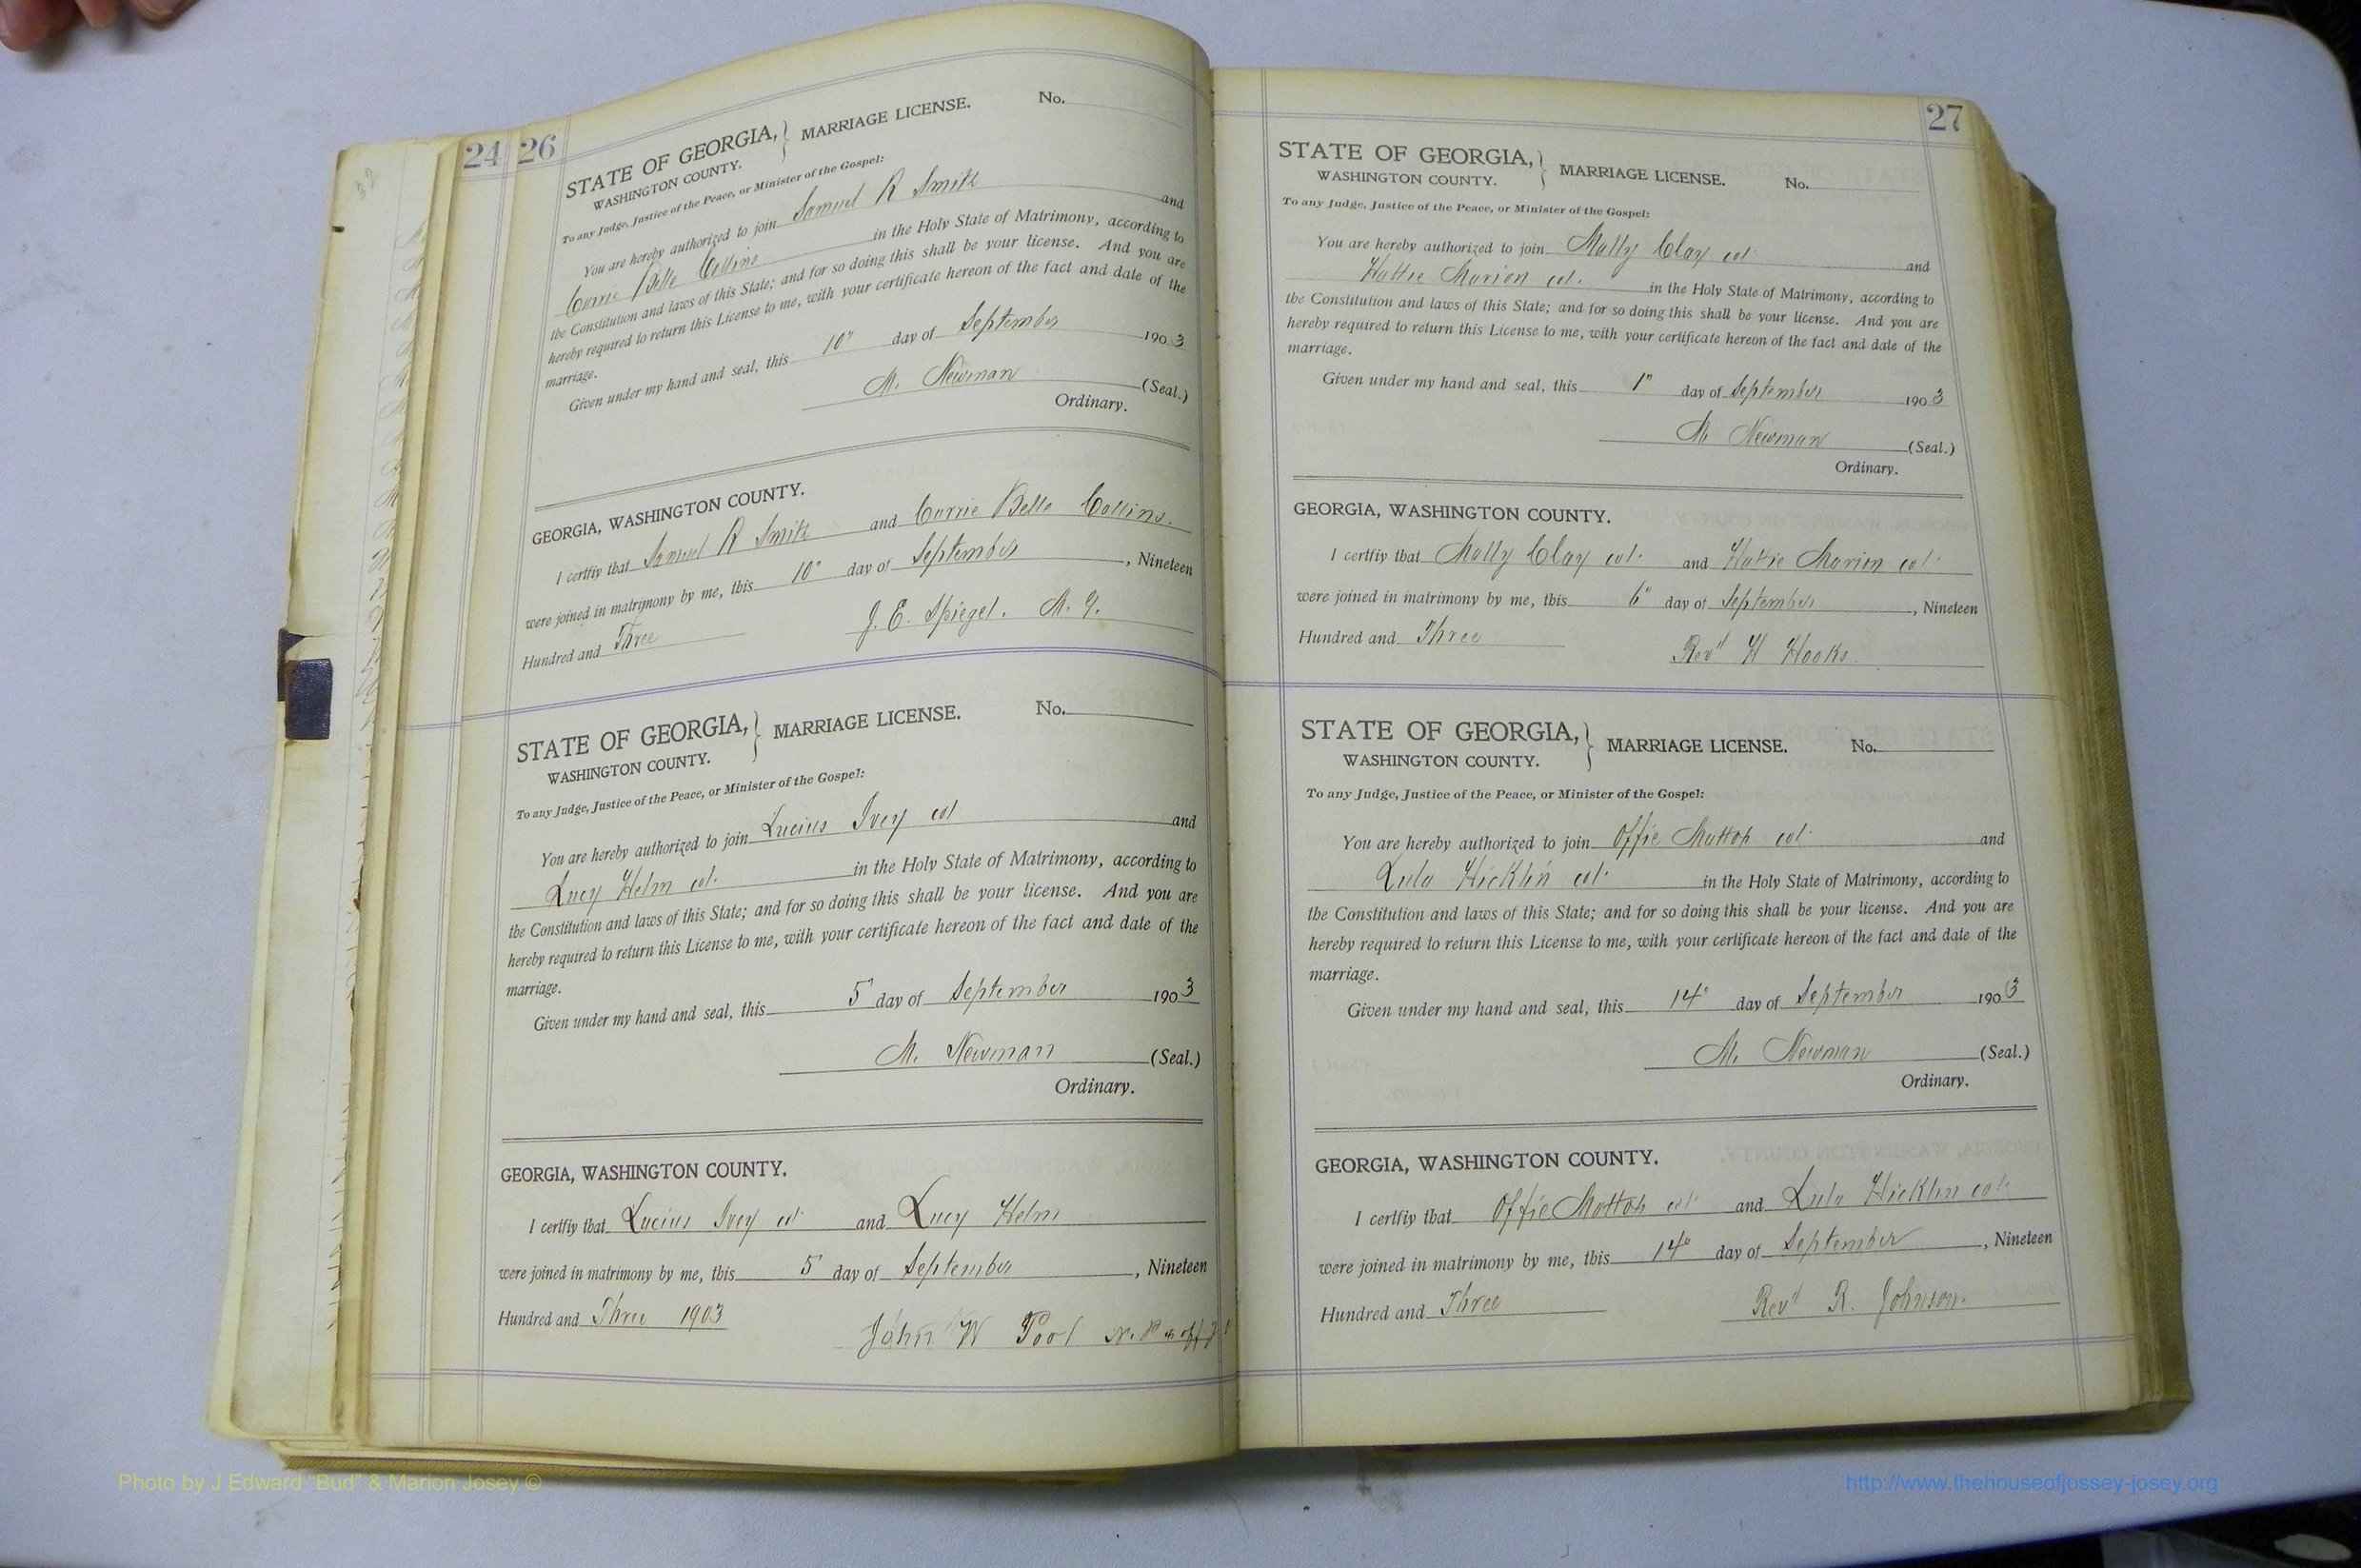 24 26
STATE OF GEORGIA, } MARRIAGE LICENSE. No.
WASHINGTON COUNTY.
To any Judge, Justice of the Peace, or Minister of the Gospel:
You are hereby authorized to join Samuel R Smith and
Carrie Belle Collins in the Holy State of Matrimony, according to
the Constitution and laws of this State; and for so doing this shall be your license. And you are
hereby required to return this License to me, with your certificate hereon of the fact and date of the
marriage.
Given under my hand and seal, this 10" day of September 1903
M. Newman (Seal.)
Ordinary.
GEORGIA, WASHINGTON COUNTY.
I certfiy that Samuel R Smith and Carrie Belle Collins.
were joined in matrimony by me, this 10" day of September, Nineteen
Hundred and Three
J. E. Spiegel. M. G.
STATE OF GEORGIA, } MARRIAGE LICENSE. No.
WASHINGTON COUNTY.
To any Judge, Justice of the Peace, or Minister of the Gospel:
You are hereby authorized to join Lucius Ivey col and
Lucy Helm col. in the Holy State of Matrimony, according to
the Constitution and laws of this State; and for so doing this shall be your license. And you are
hereby required to return this License to me, with your certificate hereon of the fact and date of the
marriage.
Given under my hand and seal, this 5 day of September 1903
M. Newman (Seal.)
Ordinary.
GEORGIA, WASHINGTON COUNTY.
I certfiy that Lucius Ivey col and Lucy Helm
were joined in matrimony by me, this 5 day of September, Nineteen
Hundred and Three 1903
John W Pool N. P.
27
STATE OF GEORGIA, } MARRIAGE LICENSE. No.
WASHINGTON COUNTY.
To any Judge, Justice of the Peace, or Minister of the Gospel:
You are hereby authorized to join Mally Clay col and
Hattie Marion col. in the Holy State of Matrimony, according to
the Constitution and laws of this State; and for so doing this shall be your license. And you are
hereby required to return this License to me, with your certificate hereon of the fact and date of the
marriage.
Given under my hand and seal, this 1" day of September 1903
M. Newman (Seal.)
Ordinary.
GEORGIA, WASHINGTON COUNTY.
I certfiy that Mally Clay col. and Hattie Marion col.
were joined in matrimony by me, this 6" day of September, Nineteen
Hundred and Three
Revd H Hooks.
STATE OF GEORGIA, } MARRIAGE LICENSE. No.
WASHINGTON COUNTY.
To any Judge, Justice of the Peace, or Minister of the Gospel:
You are hereby authorized to join Offie col. and
Lula Hicklin col. in the Holy State of Matrimony, according to
the Constitution and laws of this State; and for so doing this shall be your license. And you are
hereby required to return this License to me, with your certificate hereon of the fact and date of the
marriage.
Given under my hand and seal, this 14" day of September 1903
M. Newman (Seal.)
Ordinary.
GEORGIA, WASHINGTON COUNTY.
I certfiy that Offie col. and Lula Hicklin col.
were joined in matrimony by me, this 14" day of September, Nineteen
Hundred and Three
Revd R. Johnson.
Photo by J Edward "Bud" & Marion Josey ©
http://www.thehouseofjossey-josey.org